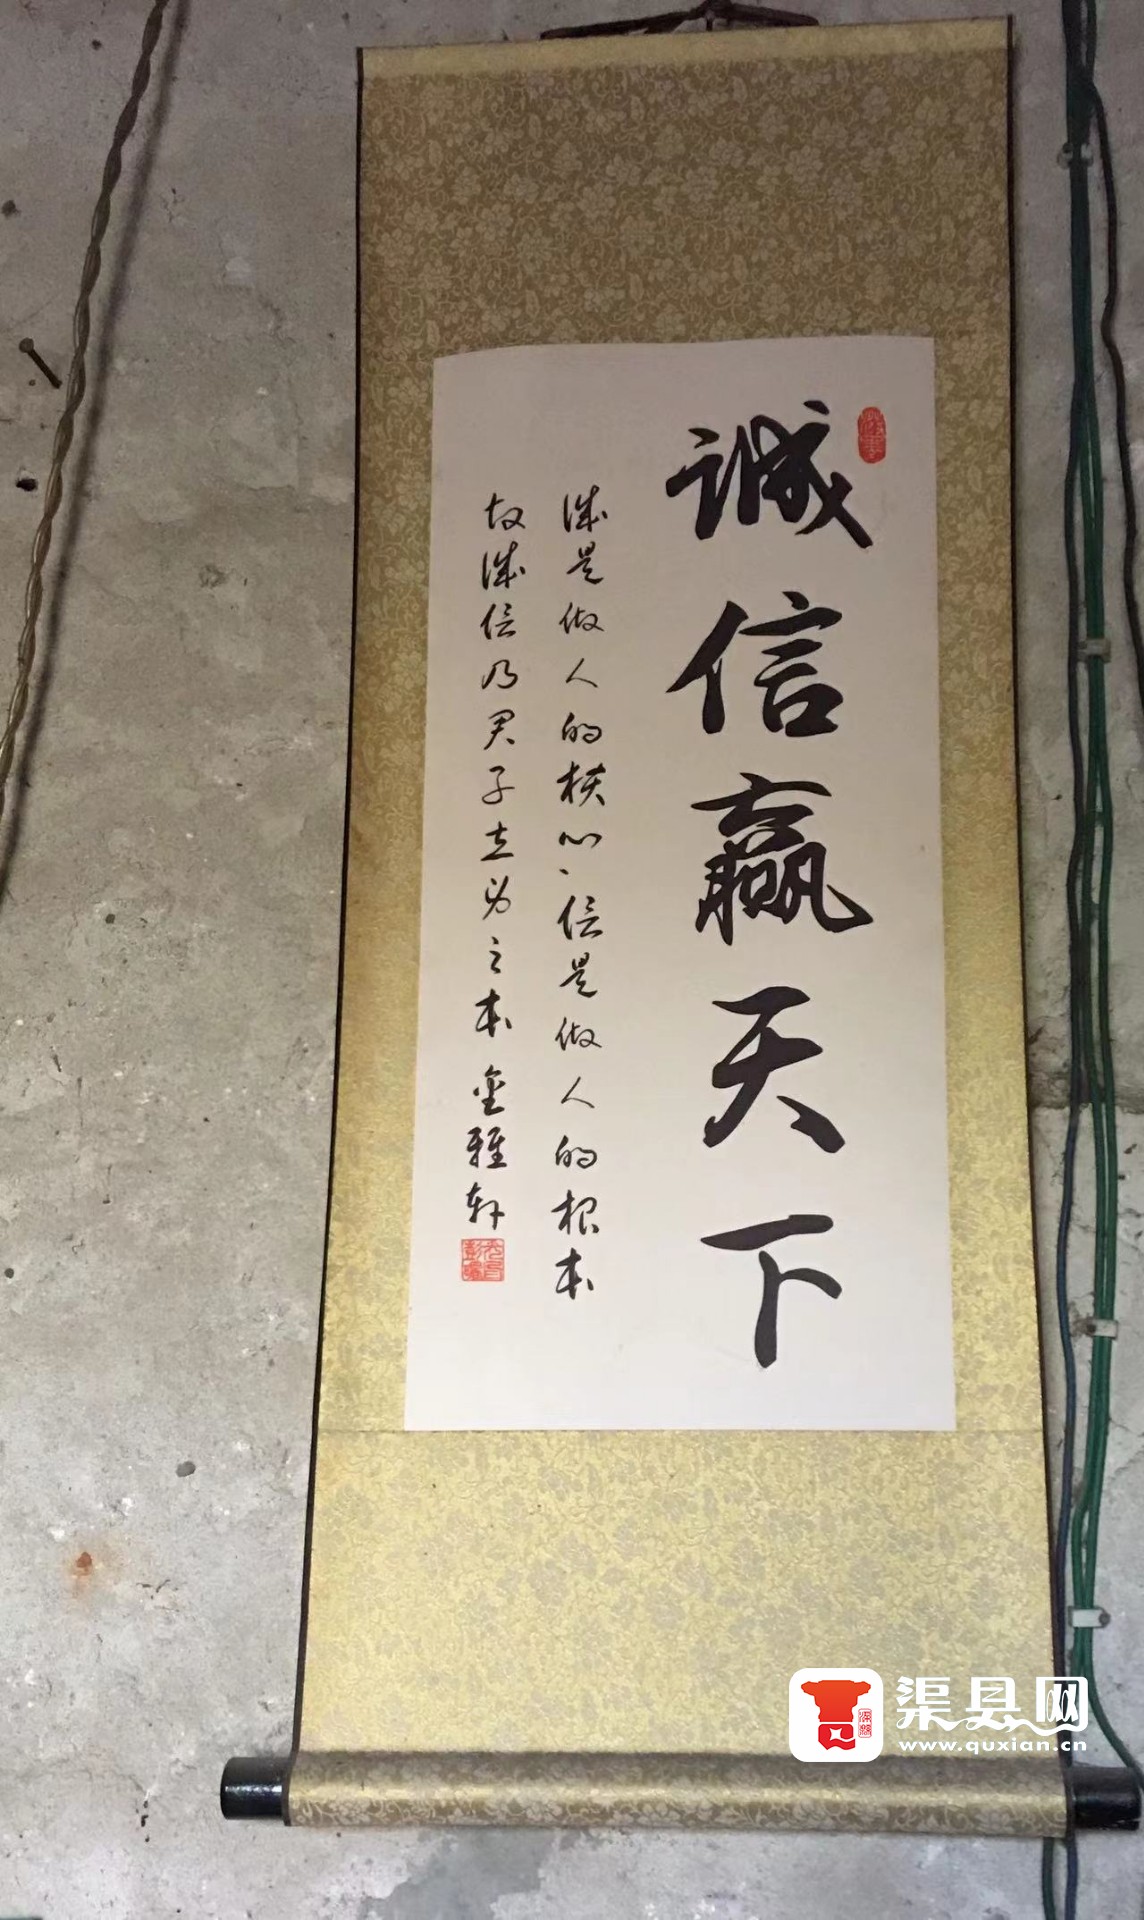 誠信贏天下
诚是做人的核心、信是做人的根本
故诚信乃君子立身之本 金雅轩
渠县网
www.quxian.cn